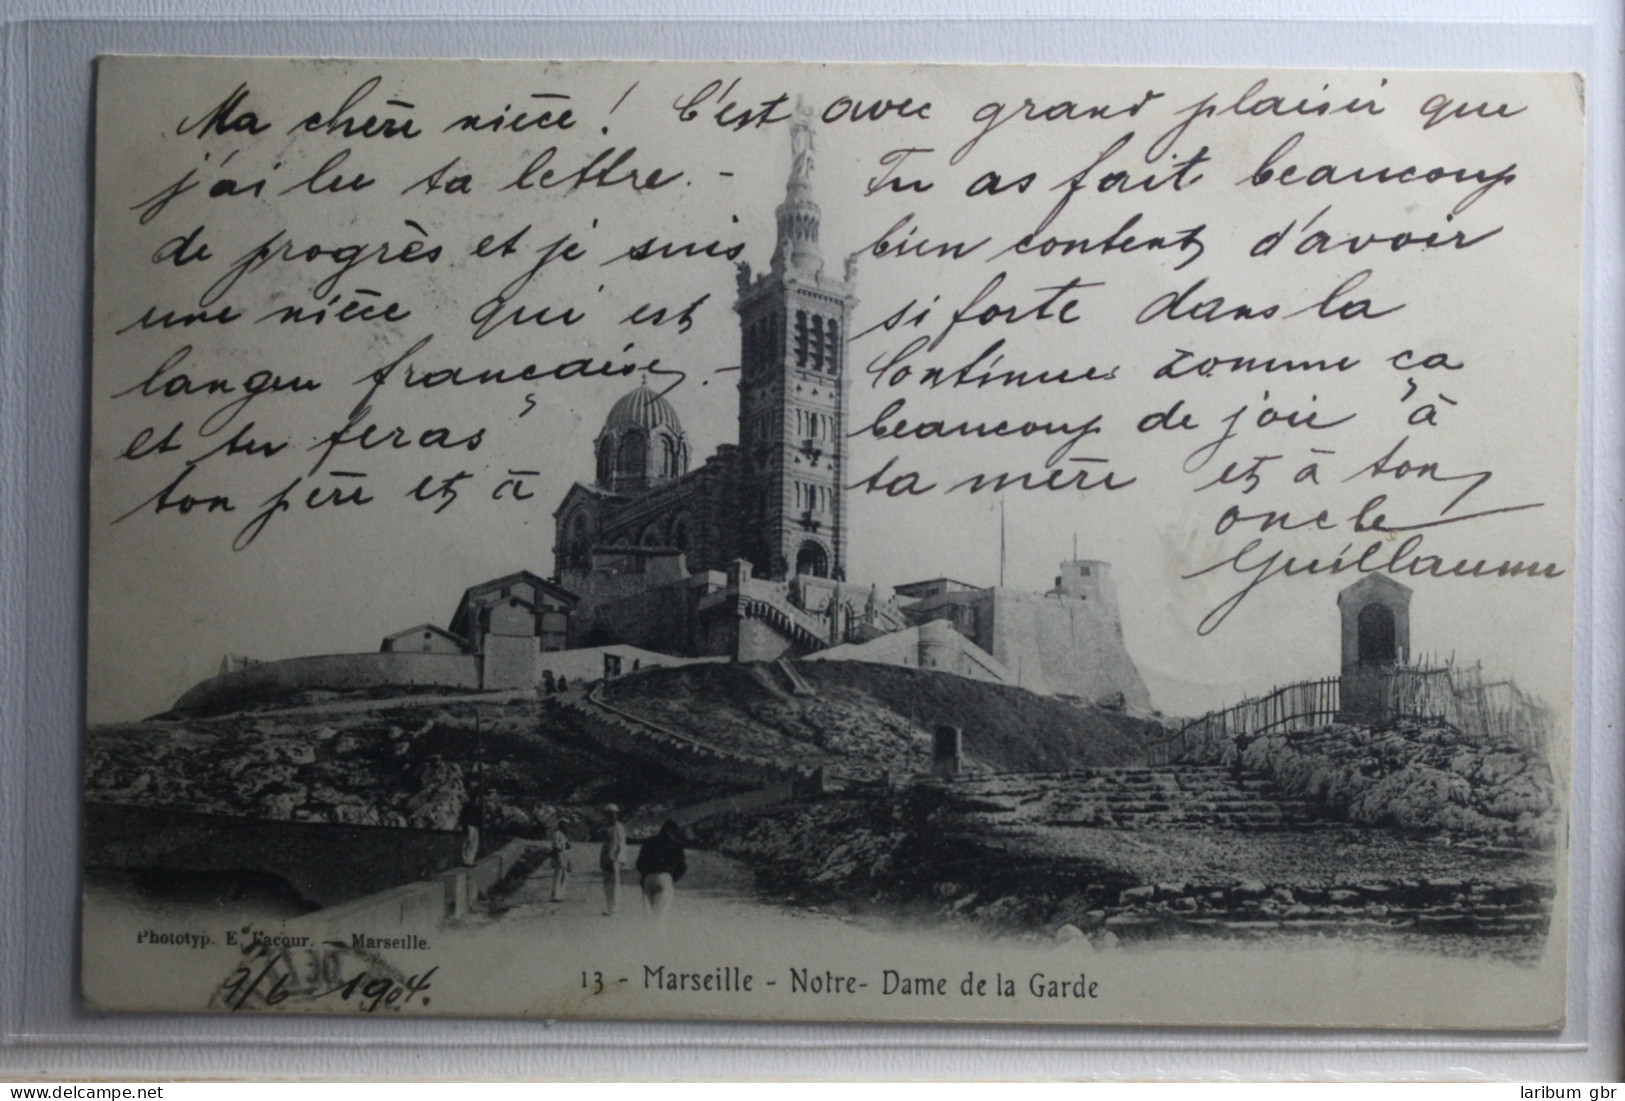 Ma chère nièce ! C'est avec grand plaisir que
j'ai lu ta lettre. - Tu as fait beaucoup
de progrès et je suis bien content d'avoir
une nièce qui est si forte dans la
langue française. - Continues comme ça
et tu feras beaucoup de joie à
ton père et à ta mère et à ton
oncle
Guillaume
Phototyp. E. Lacour. — Marseille.
9/6 1904.
13 - Marseille - Notre-Dame de la Garde
laribum gbr